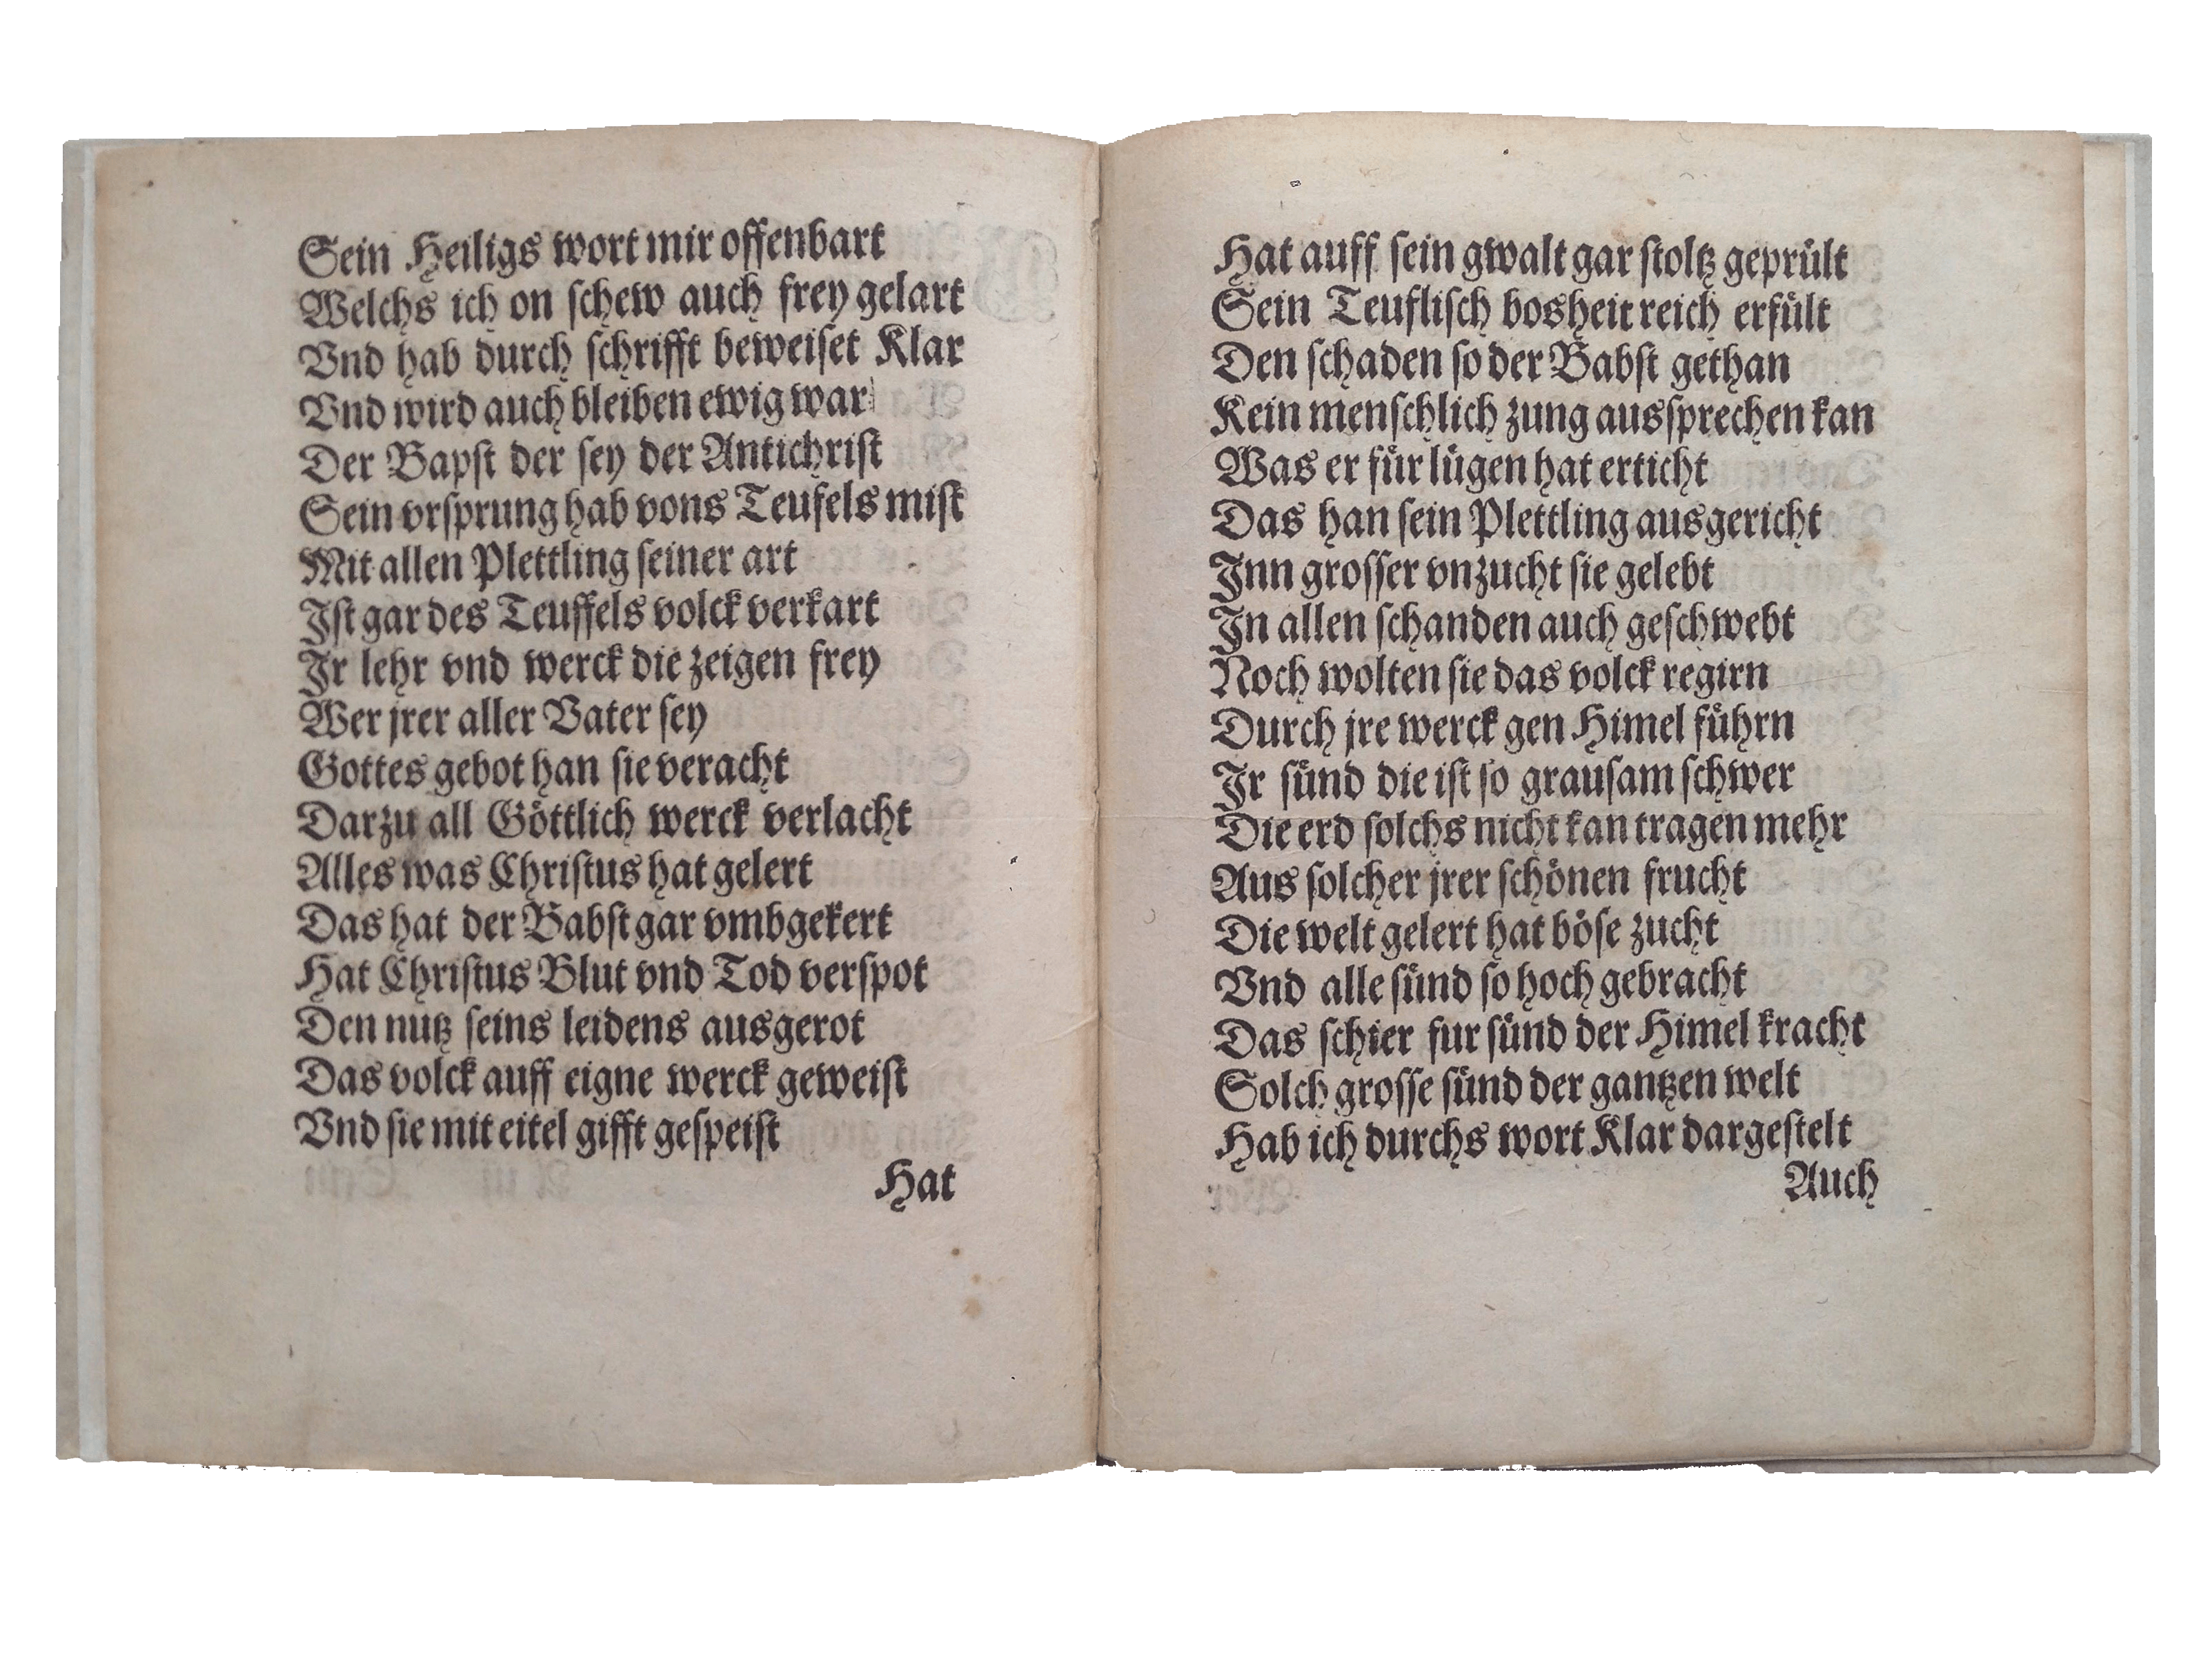 Sein Heiligs wort mir offenbart
Welchs ich on ſchew auch frey gelart
Vnd hab durch ſchrifft beweiſet Klar
Vnd wird auch bleiben ewig war
Der Bapſt der ſey der Antichriſt
Sein vrſprung hab vons Teufels miſt
Mit allen Plettling ſeiner art
Jſt gar des Teuffels volck verkart
Jr lehr vnd werck die zeigen frey
Wer jrer aller Vater ſey
Gottes gebot han ſie veracht
Darzu all Göttlich werck verlacht
Alles was Chriſtus hat gelert
Das hat der Babſt gar vmbgekert
Hat Chriſtus Blut vnd Tod verſpot
Den nutz ſeins leidens ausgerot
Das volck auff eigne werck geweiſt
Vnd ſie mit eitel gifft geſpeiſt
Hat
Hat auff ſein gwalt gar ſtoltz geprült
Sein Teufliſch bosheit reich erfült
Den ſchaden ſo der Babſt gethan
Kein menſchlich zung ausſprechen kan
Was er für lügen hat erticht
Das han ſein Plettling ausgericht
Jnn groſſer vnzucht ſie gelebt
Jn allen ſchanden auch geſchwebt
Noch wolten ſie das volck regirn
Durch jre werck gen Himel führn
Jr ſünd die iſt ſo grauſam ſchwer
Die erd ſolchs nicht kan tragen mehr
Aus ſolcher jrer ſchönen frucht
Die welt gelert hat böſe zucht
Vnd alle ſünd ſo hoch gebracht
Das ſchier fur ſünd der Himel kracht
Solch groſſe ſünd der gantzen welt
Hab ich durchs wort Klar dargeſtelt
Auch